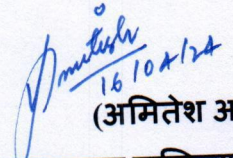 Amitesh
16/04/24
(अमितेश अ